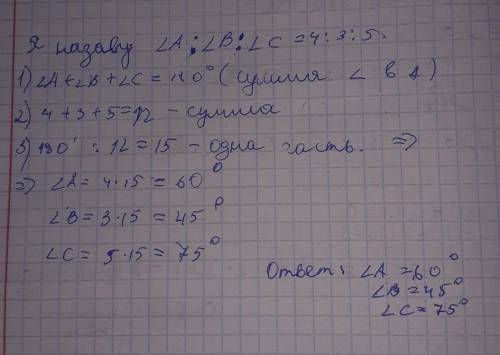 Я назаву ∠A:∠B:∠C=4:3:5.
1) ∠A+∠B+∠C=180° (сумма ∠ в Δ)
2) 4+3+5=12 - сумма
3) 180° : 12=15 - одна часть. ⇒
⇒ ∠A= 4·15 =60°
∠B= 3·15 =45°
∠C= 5·15 =75°
Ответ: ∠A =60°
∠B=45°
∠C=75°